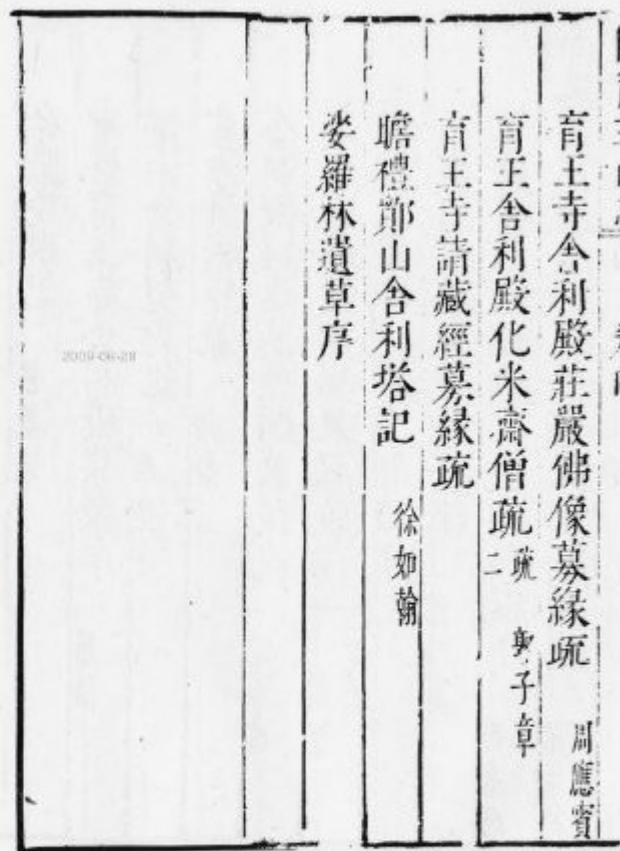 育王寺舍利殿莊嚴佛像募緣疏 周應賓
育王舍利殿化米齋僧疏 疏二 郭子章
育王寺請藏經募緣疏
瞻禮鄮山舍利塔記 徐如翰
娑羅林遺草序
2009-06-28